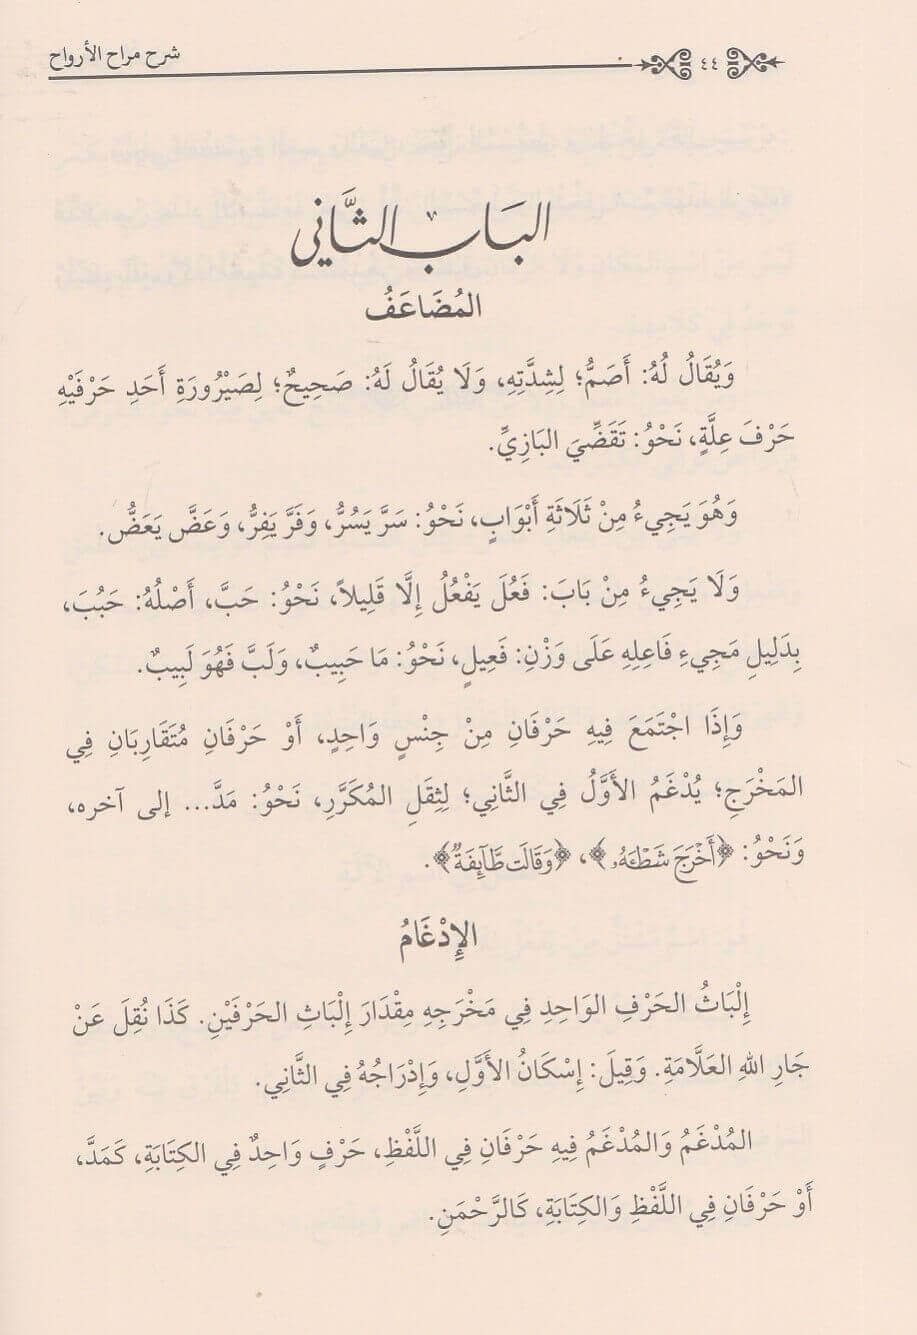 ٤٤ شرح مراح الأرواح
البَابُ الثَّانِي
المُضَاعَفُ
وَيُقَالُ لُهُ: أَصَمُّ؛ لِشِدَّتِهِ، وَلَا يُقَالُ لَهُ: صَحِيحٌ؛ لِصَيْرُورَةِ أَحَدِ حَرْفَيْهِ
حَرْفَ عِلَّةٍ، نَحْوُ: تَقَضِّيَ البَازِيِّ.
وَهُوَ يَجِيءُ مِنْ ثَلَاثَةِ أَبْوَابٍ، نَحْوُ: سَرَّ يَسُرُّ، وَفَرَّ يَفِرُّ، وَعَضَّ يَعَضُّ.
وَلَا يَجِيءُ مِنْ بَابَ: فَعُلَ يَفْعُلُ إِلَّا قَلِيلاً، نَحْوُ: حَبَّ، أَصْلُهُ: حَبُبَ،
بِدَلِيلِ مَجِيءِ فَاعِلِهِ عَلَى وَزْنِ: فَعِيلٍ، نَحْوُ: مَا حَبِيبٌ، وَلَبَّ فَهُوَ لَبِيبٌ.
وَإِذَا اجْتَمَعَ فِيهِ حَرْفَانِ مِنْ جِنْسٍ وَاحِدٍ، أَوْ حَرْفَانِ مُتَقَارِبَانِ فِي
المَخْرَجِ؛ يُدْغَمُ الأَوَّلُ فِي الثَّانِي؛ لِثِقَلِ المُكَرَّرِ، نَحْوُ: مَدَّ... إلى آخره،
وَنَحْوُ: ﴿أَخْرَجَ شَطْـَٔهُۥ﴾، ﴿وَقَالَت طَّآئِفَةٌ﴾.
الإِدْغَامُ
إِلْبَاثُ الحَرْفِ الوَاحِدِ فِي مَخْرَجِهِ مِقْدَارَ إِلْبَاثِ الحَرْفَيْنِ. كَذَا نُقِلَ عَنْ
جَارِ اللهِ العَلَّامَةِ. وَقِيلَ: إِسْكَانُ الأَوَّلِ، وَإِدْرَاجُهُ فِي الثَّانِي.
المُدْغَمُ وَالمُدْغَمُ فِيهِ حَرْفَانِ فِي اللَّفْظِ، حَرْفٍ وَاحِدٌ فِي الكِتَابَةِ، كَمَدَّ،
أَوْ حَرْفَانِ فِي اللَّفْظِ وَالكِتَابَةِ، كَالرَّحْمَنِ.